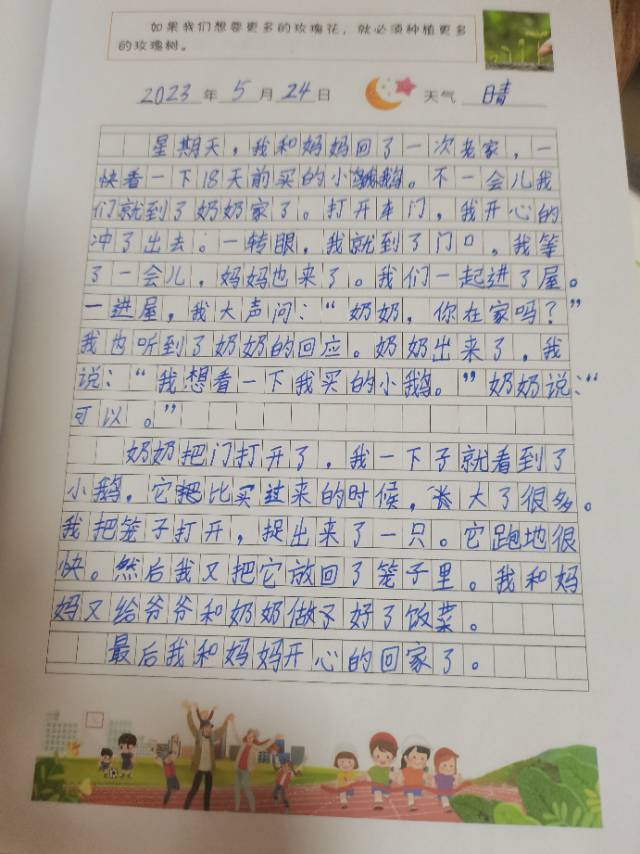 如果我们想要更多的玫瑰花,就必须种植更多
的玫瑰树。
2023 年 5 月 24 日 天气 晴
星期天,我和妈妈回了一次老家,一
快看一下18天前买的小鹅。不一会儿我
们就到了奶奶家了。打开车门,我开心的
冲了出去。一转眼,我就到了门口,我等
了一会儿,妈妈也来了。我们一起进了屋。
一进屋,我大声问:“奶奶,你在家吗?”
我也听到了奶奶的回应。奶奶出来了,我
说:“我想看一下我买的小鹅。”奶奶说:“
可以。”
奶奶把门打开了,我一下子就看到了
小鹅,它比买过来的时候,长大了很多。
我把笼子打开,捉出来了一只。它跑地很
快。然后我又把它放回了笼子里。我和妈
妈又给爷爷和奶奶做下好了饭菜。
最后我和妈妈开心的回家了。